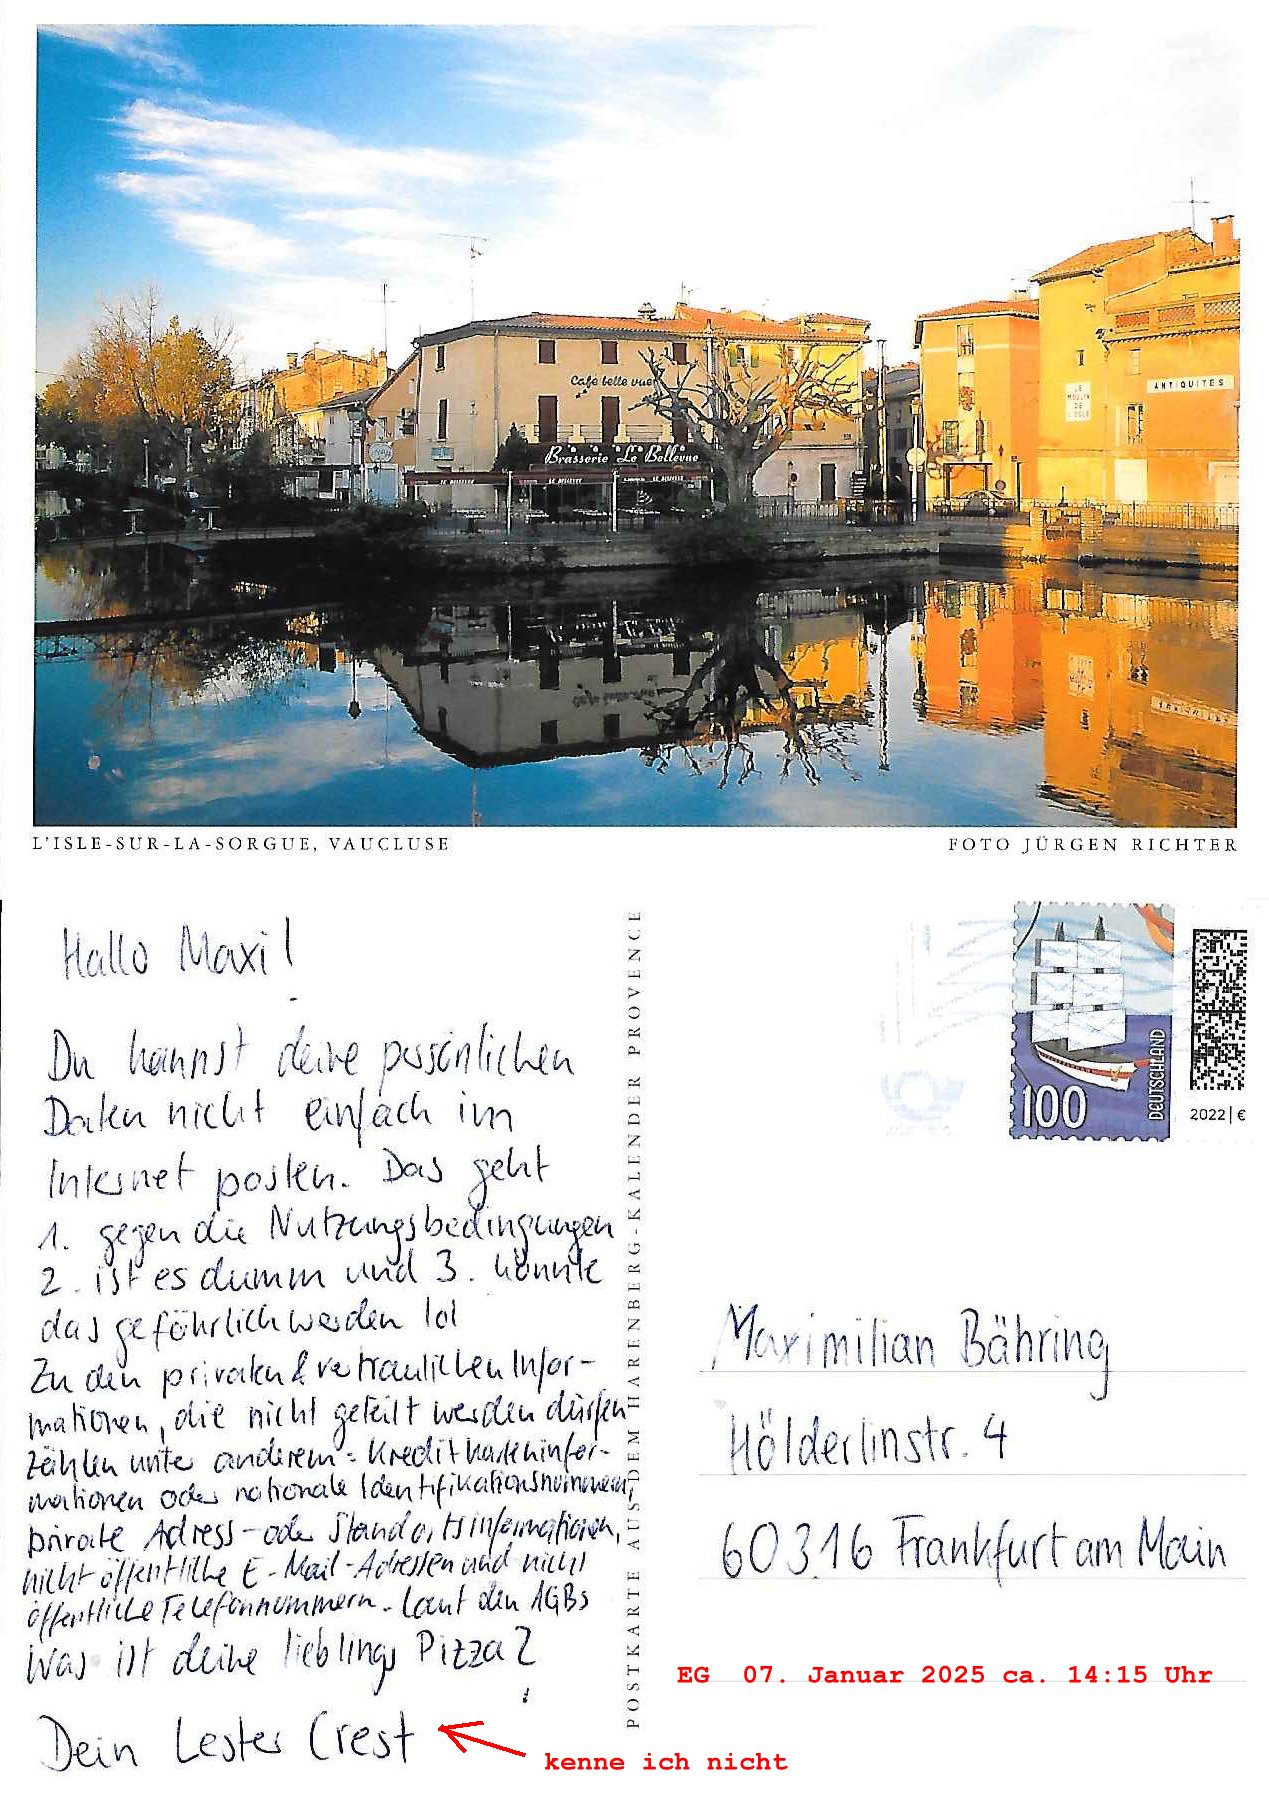 Café belle vue
Brasserie Le Bellevue
LE BELLEVUE
LE BELLEVUE
LE
MOULIN
DE
L'ISLE
ANTIQUITÉS
L'ISLE-SUR-LA-SORGUE, VAUCLUSE
FOTO JÜRGEN RICHTER
Hallo Maxi!
Du kannst deine persönlichen
Daten nicht einfach im
Internet posten. Das geht
1. gegen die Nutzungsbedingungen
2. ist es dumm und 3. könnte
das gefährlich werden lol
Zu den privaten & vertraulichen Infor-
mationen, die nicht geteilt werden dürfen
zählen unter anderem: Kreditkarteninfor-
mationen oder nationale Identifikationsnummern,
private Adress- oder Standortsinformationen,
nicht öffentliche E-Mail-Adressen und nicht
öffentliche Telefonnummern. Laut den AGBs
Was ist deine lieblings Pizza?
Dein Lester Crest
kenne ich nicht
POSTKARTE AUS DEM HARENBERG-KALENDER PROVENCE
100
DEUTSCHLAND
2022 | €
Maximilian Bähring
Hölderlinstr. 4
60316 Frankfurt am Main
EG 07. Januar 2025 ca. 14:15 Uhr